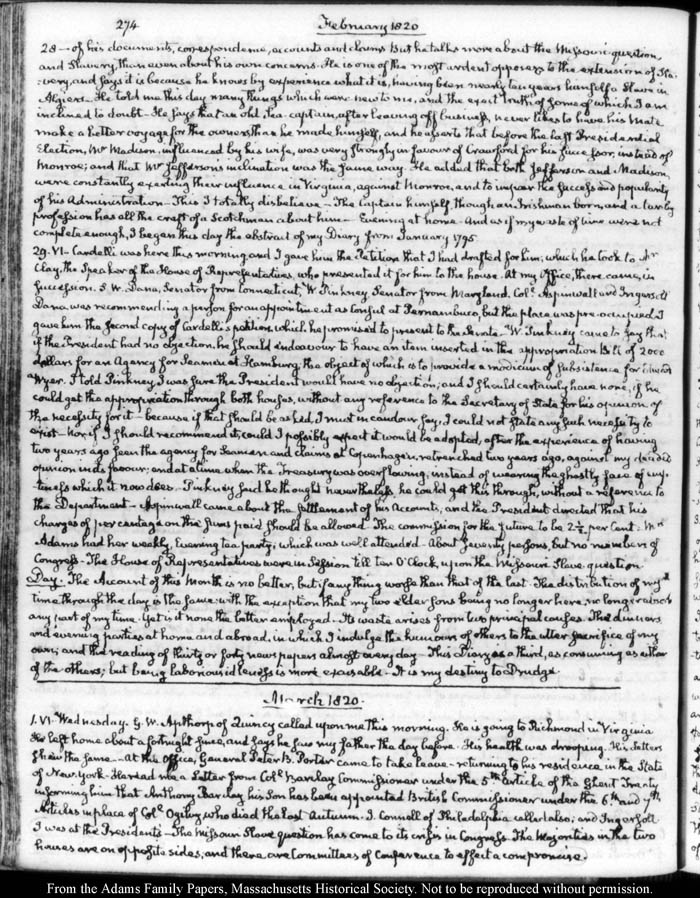 274
February 1820
28 — of his documents, correspondence, accounts and claims But he talks more about the Missouri question,
and Slavery, than even about his own concerns. He is one of the most ardent opposers to the extension of Sla-
very, and says it is because he knows by experience what it is, having been nearly ten years himself a Slave in
Algiers — He told me this day many things which were new to me, and the exact truth of some of which I am
inclined to doubt — He says that an old Sea-captain, after leaving off business, never likes to have his Mate
make a better voyage for the owners than he made himself, and he asserts that before the last Presidential
Election, Mr Madison influenced by his wife, was very strongly in favour of Crawford for his successor, instead of
Monroe; and that Mr Jefferson's inclination was the same way. He added that both Jefferson and Madison,
were constantly exerting their influence in Virginia, against Monroe, and to impair the success and popularity
of his Administration — This I totally disbelieve — The Captain himself, though an Irishman born, and a by
profession has all the craft of a Scotchman about him — Evening at home — And as if my waste of time were not
complete enough, I began this day the abstract of my Diary from January 1795.
29. VI. Cardelli was here this morning, and I gave him the Petition that I had drafted for him; which he took to Mr
Clay, the Speaker of the House of Representatives, who presented it for him to the house. At my Office, there came, in
succession. S. W. Dana, Senator from Connecticut, W. Pinkney Senator from Maryland, Coll. Aspinwall and Ingersoll
Dana was recommending a person for an appointment as Consul at Pernambuco, but the place was pre-occupied. I
gave him the second copy of Cardelli's petition, which he promised to present to the Senate. W Pinkney came to say that
if the President had no objection, he should endeavour to have an item inserted in the appropriation Bill of 2000
dollars for an Agency for Seamen at Hamburg, the object of which is to provide a modicum of subsistence for Edward
Wyer. I told Pinkney I was sure the President would have no objection; and I should certainly have none, if he
could get the appropriation through both houses, without any reference to the Secretary of State for his opinion of
the necessity for it — because if that should be asked, I must in candour say, I could not state any such necessity to
exist — nor if I should recommend it, could I possibly expect it would be adopted, after the experience of having
two years ago seen the agency for Seamen and claims at Copenhagen, retrenched two years ago, against my decided
opinion in its favour; and at a time when the Treasury was overflowing, instead of wearing the ghastly face of emp-
tiness which it now does. Pinkney said he thought nevertheless he could get this through, without a reference to
the Department — Aspinwall came about the settlement of his Accounts, and the President directed that his
charges of per centage on the sums paid should be allowed. The commission for the future to be 2½ per Cent. Mrs
Adams had her weekly Evening tea party; which was well attended. About seventy persons, but no members of
Congress — The House of Representatives were in Session till ten O'Clock, upon the Missouri Slave question —
Day. The Account of this Month is no better, but if any thing worse than that of the last. The distribution of my
time through the day is the same; with the exception that my two elder sons being no longer here, no longer
any part of my time. Yet is it none the better employed. Its waste arises from two principal causes. The dinners
and evening parties at home and abroad, in which I indulge the humours of others to the utter sacrifice of my
own; and the reading of thirty or forty newspapers almost every day — This Diary is a third, as consuming as either
of the others; but being laborious idleness is more excusable — It is my destiny to Drudge.
March 1820.
1. VI. Wednesday. G. W. Apthorp of Quincy called upon me this morning. He is going to Richmond in Virginia
He left home about a fortnight since, and says he saw my father the day before. His health was drooping. His letters
shew the same — At the Office, General Peter B. Porter came to take leave — returning to his residence in the State
of New York. He read me a Letter from Coll. Barclay Commissioner under the 5th article of the Ghent Treaty
informing him that Anthony Barclay his Son has been appointed British Commissioner under the 6th and 7th
Articles in place of Coll. Ogilvy who died the last Autumn. J. Connell of Philadelphia called also, and Ingersoll
I was at the Presidents — The Missouri Slave question has come to its crisis in Congress. The Majorities in the two
houses are on opposite sides, and there are Committees of Conference to effect a compromise.
From the Adams Family Papers, Massachusetts Historical Society. Not to be reproduced without permission.